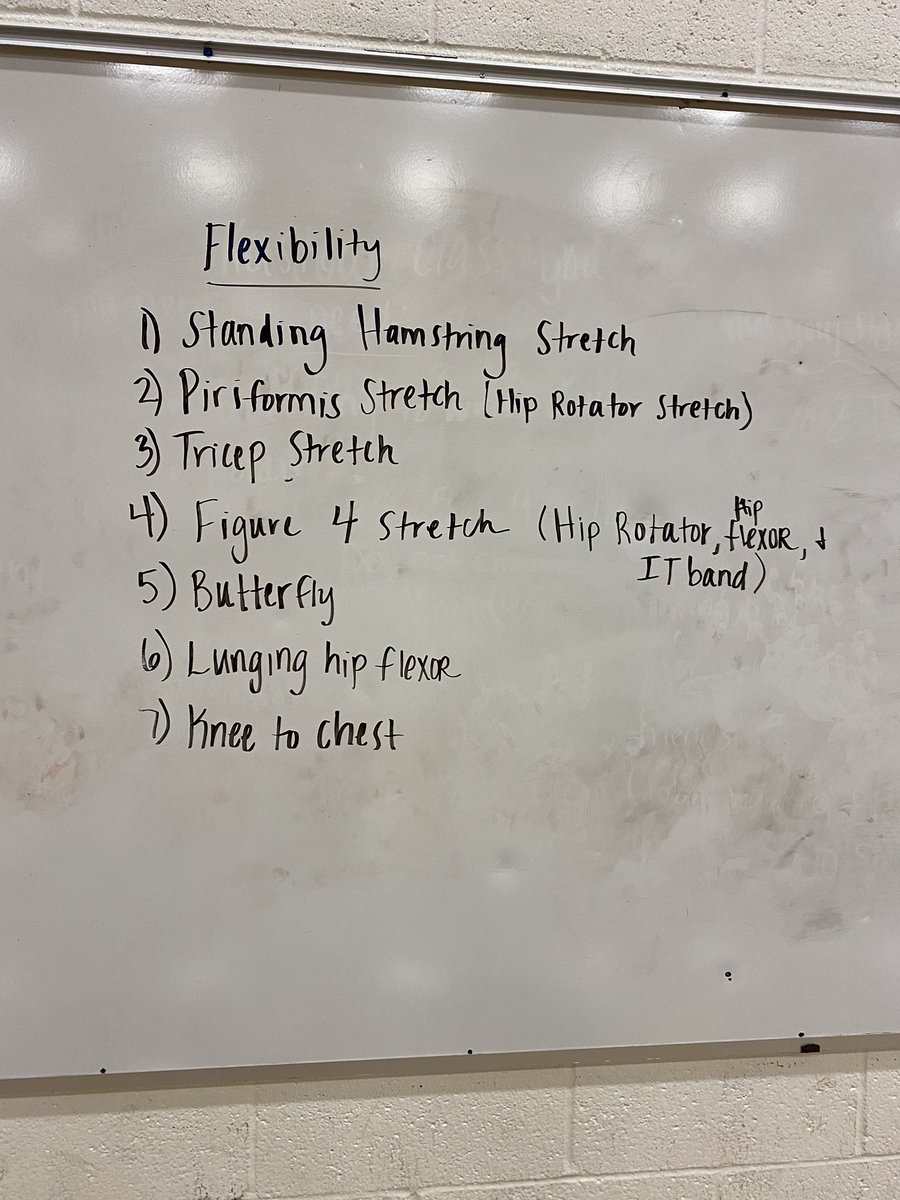 Flexibility
1) Standing Hamstring Stretch
2) Piriformis Stretch (Hip Rotator Stretch)
3) Tricep Stretch
4) Figure 4 Stretch (Hip Rotator, Hip flexor, +
IT band)
5) Butterfly
6) Lunging hip flexor
7) Knee to chest